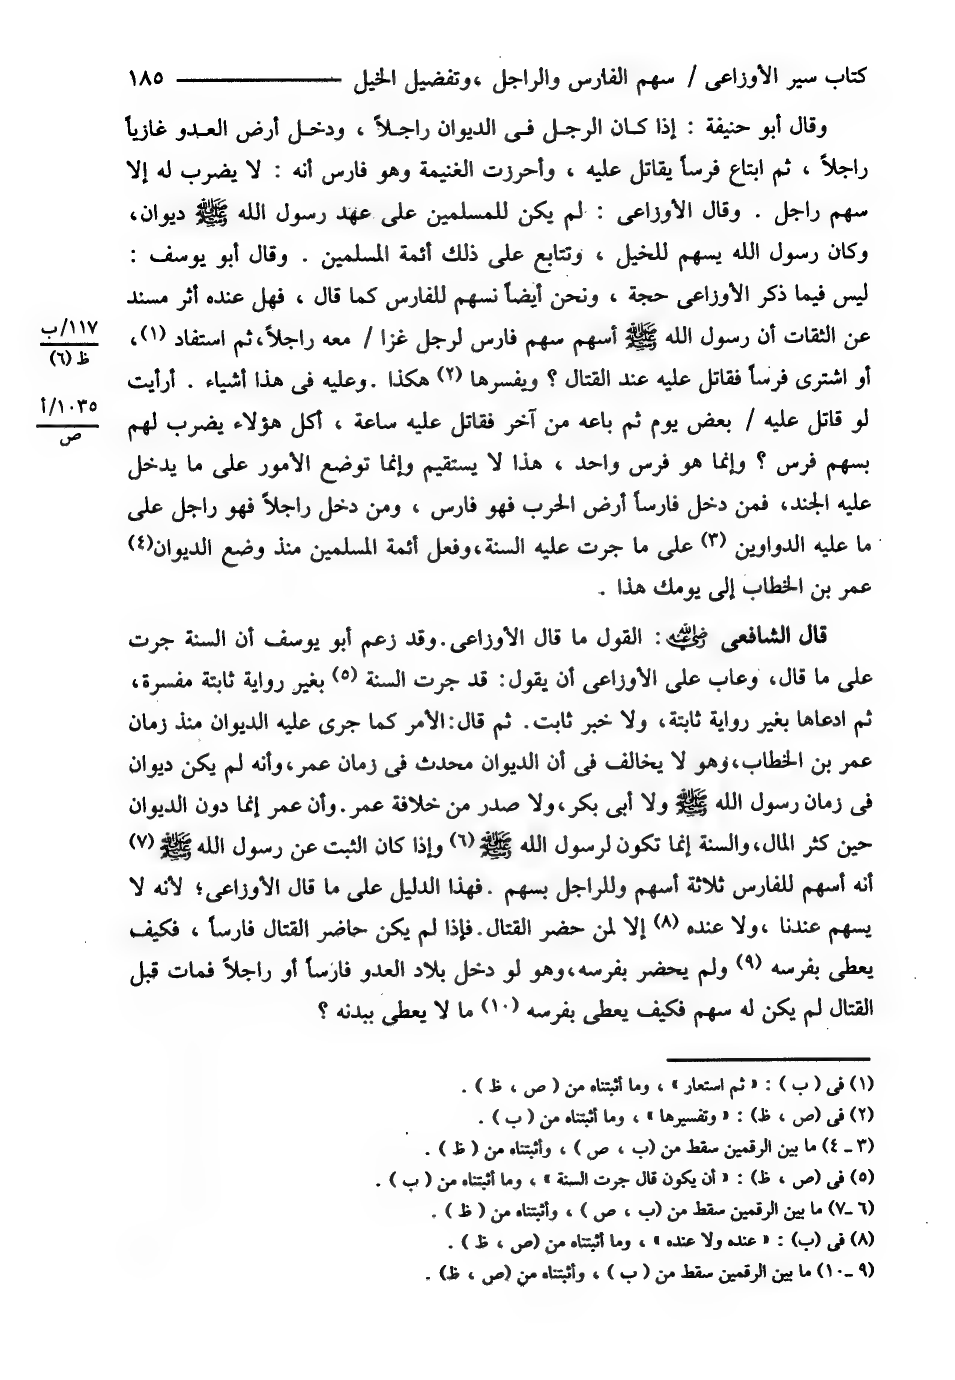 كتاب سير الأوزاعى / سهم الفارس والراجل ،وتفضيل الخيل ــــــــ ١٨٥
وقال أبو حنيفة : إذا كـان الرجـل فـى الديوان راجـلاً ، ودخـل أرض العـدو غازياً
راجلاً ، ثم ابتاع فرساً يقاتل عليه ، وأحرزت الغنيمة وهو فارس أنه : لا يضرب له إلا
سهم راجل . وقال الأوزاعى : لم يكن للمسلمين على عهد رسول الله ﷺ ديوان،
وكان رسول الله يسهم للخيل ، وتتابع على ذلك أئمة المسلمين . وقال أبو يوسف :
ليس فيما ذكر الأوزاعى حجة ، ونحن أيضاً نسهم للفارس كما قال ، فهل عنده أثر مسند
عن الثقات أن رسول الله ﷺ أسهم سهم فارس لرجل غزا / معه راجلاً،ثم استفاد (١)،
أو اشترى فرساً فقاتل عليه عند القتال ؟ ويفسرها (٢) هكذا .وعليه فى هذا أشياء . أرأيت
لو قاتل عليه / بعض يوم ثم باعه من آخر فقاتل عليه ساعة ، أكل هؤلاء يضرب لهم
بسهم فرس ؟ وإنما هو فرس واحد ، هذا لا يستقيم وإنما توضع الأمور على ما يدخل
عليه الجند، فمن دخل فارساً أرض الحرب فهو فارس ، ومن دخل راجلاً فهو راجل على
ما عليه الدواوين (٣) على ما جرت عليه السنة،وفعل أئمة المسلمين منذ وضع الديوان(٤)
عمر بن الخطاب إلى يومك هذا .
١١٧/ب
ظ (٦)
١٠٣٥/أ
ص
قال الشافعى رضي الله عنه : القول ما قال الأوزاعى.وقد زعم أبو يوسف أن السنة جرت
على ما قال، وعاب على الأوزاعى أن يقول: قد جرت السنة (٥) بغير رواية ثابتة مفسرة،
ثم ادعاها بغير رواية ثابتة، ولا خبر ثابت. ثم قال:الأمر كما جرى عليه الديوان منذ زمان
عمر بن الخطاب،وهو لا يخالف فى أن الديوان محدث فى زمان عمر،وأنه لم يكن ديوان
فى زمان رسول الله ﷺ ولا أبى بكر،ولا صدر من خلافة عمر.وأن عمر إنما دون الديوان
حين كثر المال،والسنة إنما تكون لرسول الله ﷺ (٦) وإذا كان الثبت عن رسول الله ﷺ (٧)
أنه أسهم للفارس ثلاثة أسهم وللراجل بسهم .فهذا الدليل على ما قال الأوزاعى؛ لأنه لا
يسهم عندنا ،ولا عنده (٨) إلا لمن حضر القتال.فإذا لم يكن حاضر القتال فارساً ، فكيف
يعطى بفرسه (٩) ولم يحضر بفرسه،وهو لو دخل بلاد العدو فارساً أو راجلاً فمات قبل
القتال لم يكن له سهم فكيف يعطى بفرسه (١٠) ما لا يعطى ببدنه ؟
(١) فى ( ب ) : « ثم استعار » ، وما أثبتناه من ( ص ، ظ ) .
(٢) فى (ص ، ظ) : « وتفسيرها » ، وما أثبتناه من ( ب ) .
(٣ ـ ٤) ما بين الرقمين سقط من (ب ، ص ) ، وأثبتناه من ( ظ ) .
(٥) فى (ص ، ظ) : « أن يكون قال جرت السنة » ، وما أثبتناه من ( ب ) .
(٦ ـ٧) ما بين الرقمين سقط من (ب ، ص ) ، وأثبتناه من ( ظ ) .
(٨) فى (ب) : « عنده ولا عنده » ، وما أثبتناه من (ص ، ظ ) .
(٩ ـ١٠) ما بين الرقمين سقط من ( ب ) ، وأثبتناه من (ص ، ظ) .